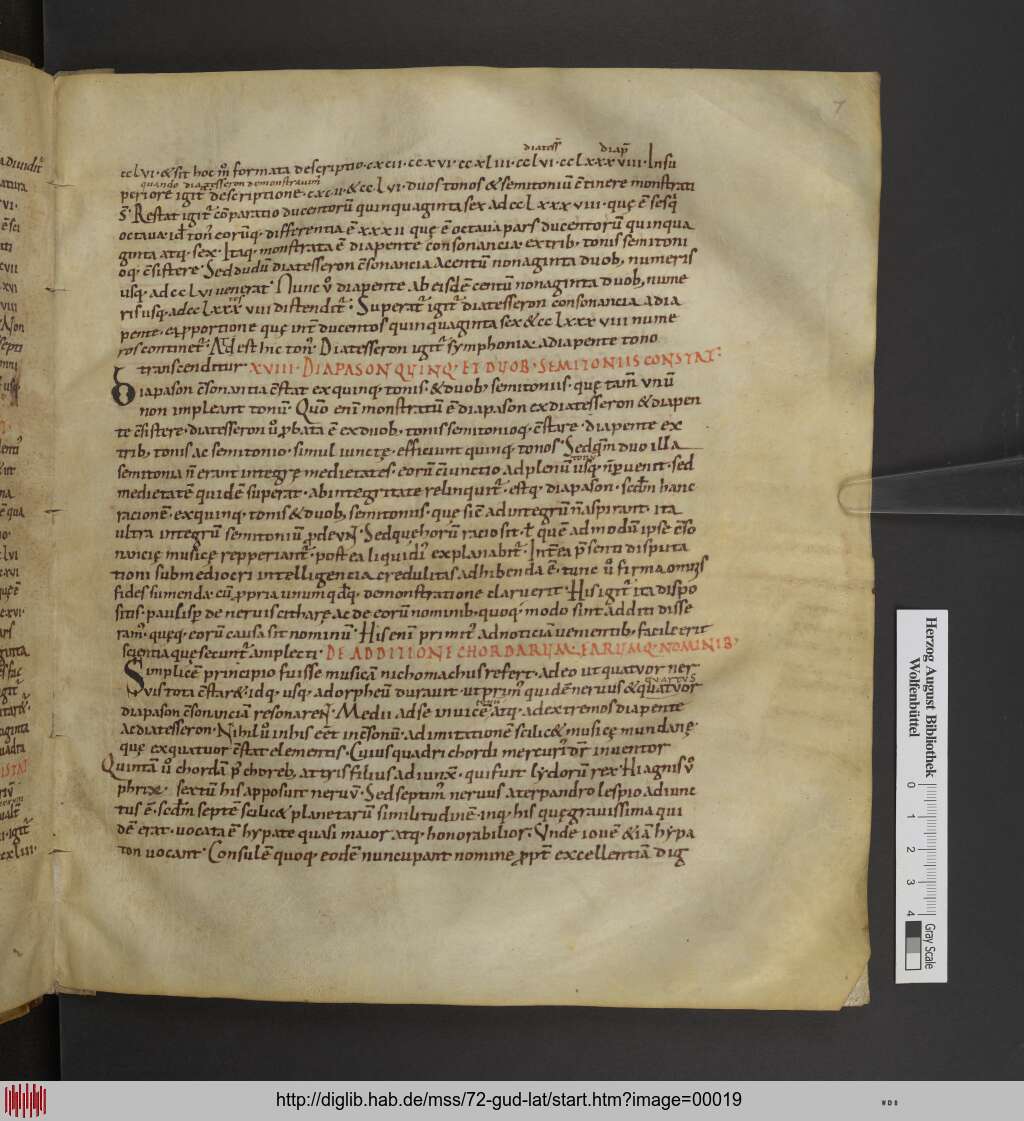 7
diatess̄ diap̄
cclvi · & sit hoc m̄ formata descriptio · cxcii · ccxvi · ccxliii · cclvi · cclxxxviii · Insu
quando diatesseron demonstravim̄
periore igit̄ descriptione · cxcii · & cclvi · duos tonos & semitoniū c̄tinere monstrati
s̄ · Restat igit̄ cōparatio ducentorū quinquaginta sex ad cclxxxviii · quę ē sesq̄
octava · id ton̄ eorūq · differentia ē xxxii quę ē octava pars ducentorū quinqua
ginta atq · sex · Itaq · monstrata ē diapente consonancia ex trib, tonis semitoni
oq · c̄sistere · Sed dudū diatesseron c̄sonancia a centū nonaginta duob, numeris
usq · ad cclvi venerat · Nunc v̄ diapente ab eisdē centū nonaginta duob, nume
ris usq · ad cclxxxviii distendit̄ · Superat̄ igit̄ diatesseron consonancia a dia
pente · ea pportione quę int̄ ducentos quinquaginta sex & cclxxxviii nume
ros continet̄ · Ad est hic ton̄ · Diatesseron igit̄ symphonia a diapente tono
transcenditur · XVIII · DIAPASON QUINQ · ET DUOB · SEMITONIIS CONSTAT ·
Diapason c̄sonantia c̄stat ex quinq · tonis · & duob, semitoniis · quę tam̄ unū
non impleant tonū · Quō enī monstratū ē diapason ex diatesseron & diapen
te c̄sistere · diatesseron v̄ pbata ē ex duob, tonis semitonioq · c̄stare · diapente ex
trib, tonis ac semitonio · simul iunctę · efficiunt quinq · tonos · Sed qm̄ duo illa
semitonia n̄ erant integrę medietates · eorū c̄iunctio ad plenū usq · n̄ pvenit · sed
medietatē quidē superat · ab integritate relinquit̄ · estq · diapason · scdm̄ hanc
racionē · ex quinq · tonis & duob, semitoniis · que sic̄ ad integrū n̄ aspirant · ita
ultra integrū semitoniū pdeun̄ · Sed quę horū racio sit · ł quē ad modū ipsę c̄so
nancię musicę repperiant̄ · postea liquidi explanabit̄ · Int̄ea p̄senti disputa
tioni submediocri intelligencia credulitas adhibenda ē · tunc v̄ firma omis
fides sumenda · cū ppria unumqdq · demonstratione claruerit · His igit̄ ita dispo
sitis · paulisp de nervis citharę ac de eorū nominib · quoq · modo sint additi disse
ram̄ · quęq · eorū causa sit nominū · His enī primit̄ ad noticiā venientib, facile erit
scientia quę secunt̄ amplecti · DE ADDITIONE CHORDARUM · EARUMQ · NOMINIB ·
Simplicē principio fuisse musicā nichomachus refert · adeo ut quatuor ner
quartus
vis tota c̄star& · idq · usq · ad orpheū duravit · ut prim̄ quidē nervus & quatuor
diapason c̄sonanciā resonaren̄ · Medii ad se invicē · atq · ad extremos diapente
ac diatesseron · Nihil v̄ in his eēt inc̄sonū · ad imitationē scilic& musicę mundanę
quę ex quatuor c̄stat elementis · Cuius quadri chordi mercuri dr̄ inventor
Quintā v̄ chordā p̄ choreb, attris filius adiunx̄ · qui fuit lydorū rex · Hiagnis v̄
phrix · sextū his apposuit nervū · Sed septim̄ nervus a terpandro lespio adiunc
tus ē · scdm̄ septē scilic& planetarū similitudinē · inq · his quę gravissima qui
dē erat · vocata ē hypate quasi maior atq · honorabilior · Unde iovē & iā hypa
ton vocant · Consulē quoq · eodē nuncupant nomine ppt̄ excellentiā dig
Herzog August Bibliothek
Wolfenbüttel
0 1 2 3 4
Gray Scale
http://diglib.hab.de/mss/72-gud-lat/start.htm?image=00019
WDB